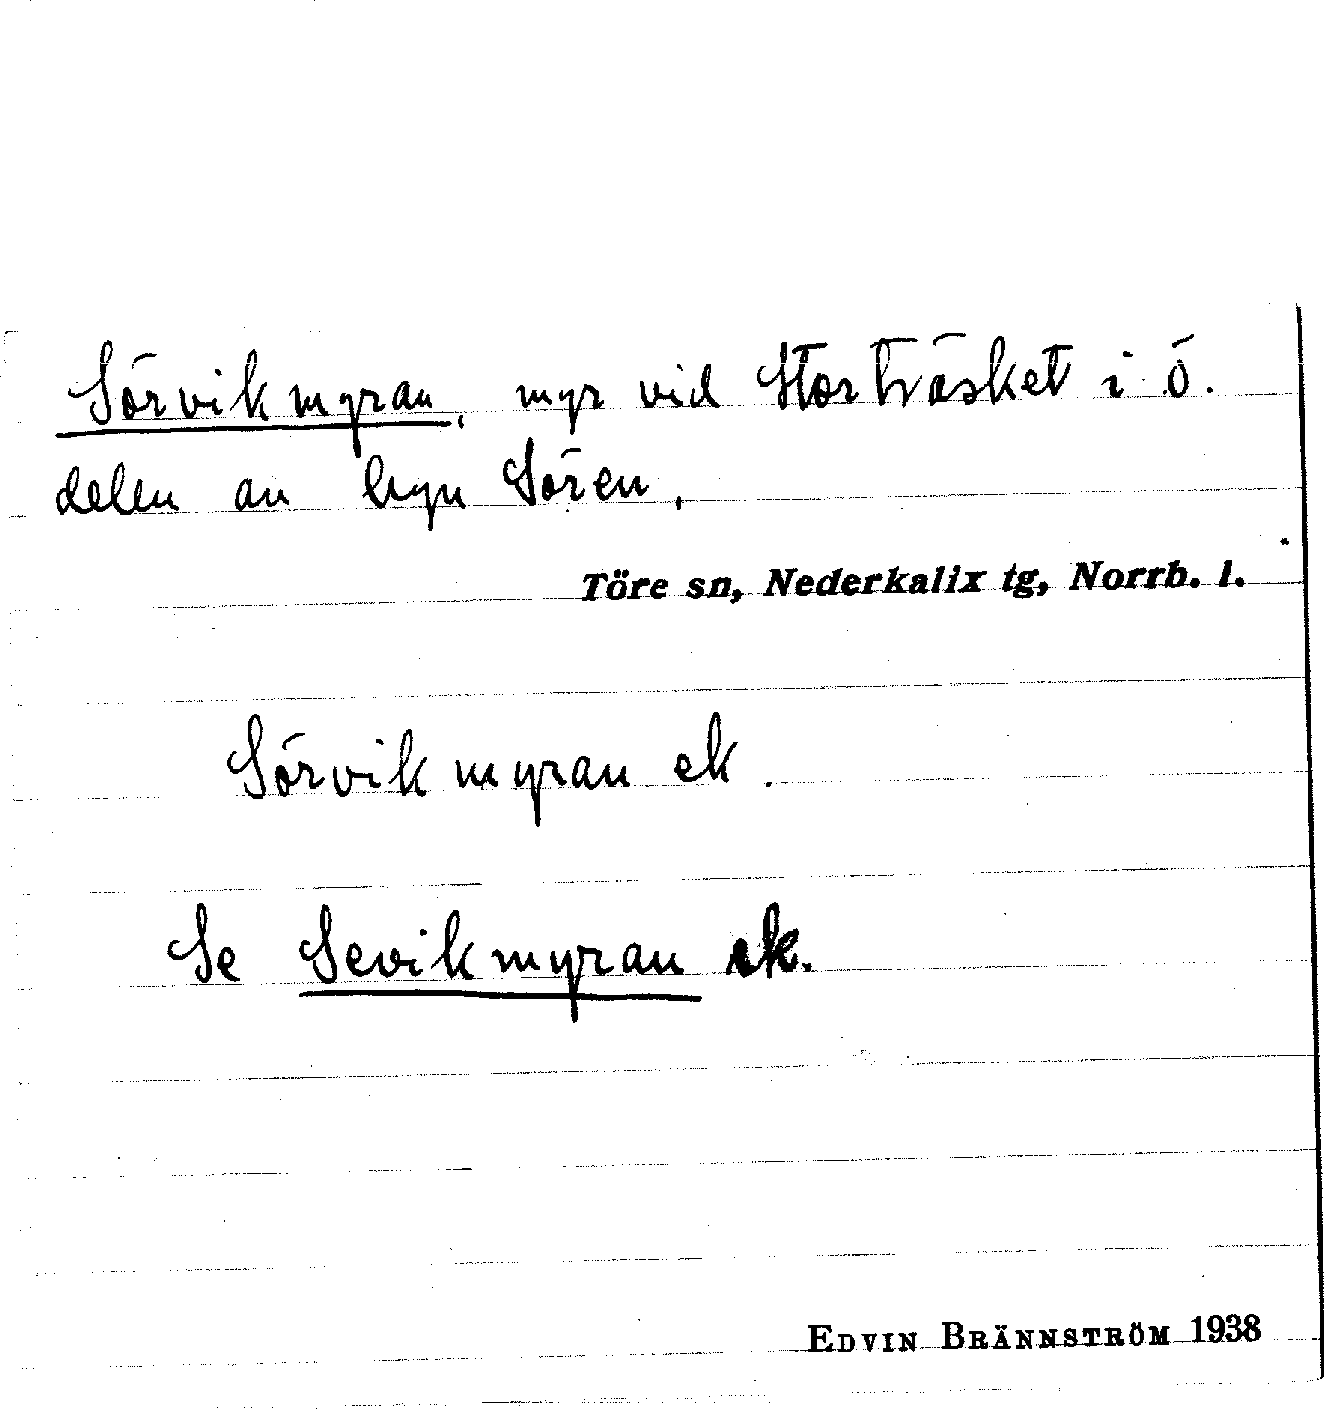 Sörvikmyran, myr vid Storträsket i ö.
delen av byn Sören.
Töre sn, Nederkalix tg, Norrb. l.
Sörvikmyran ek.
Se Sevikmyran ek.
EDVIN BRÄNNSTRÖM 1938